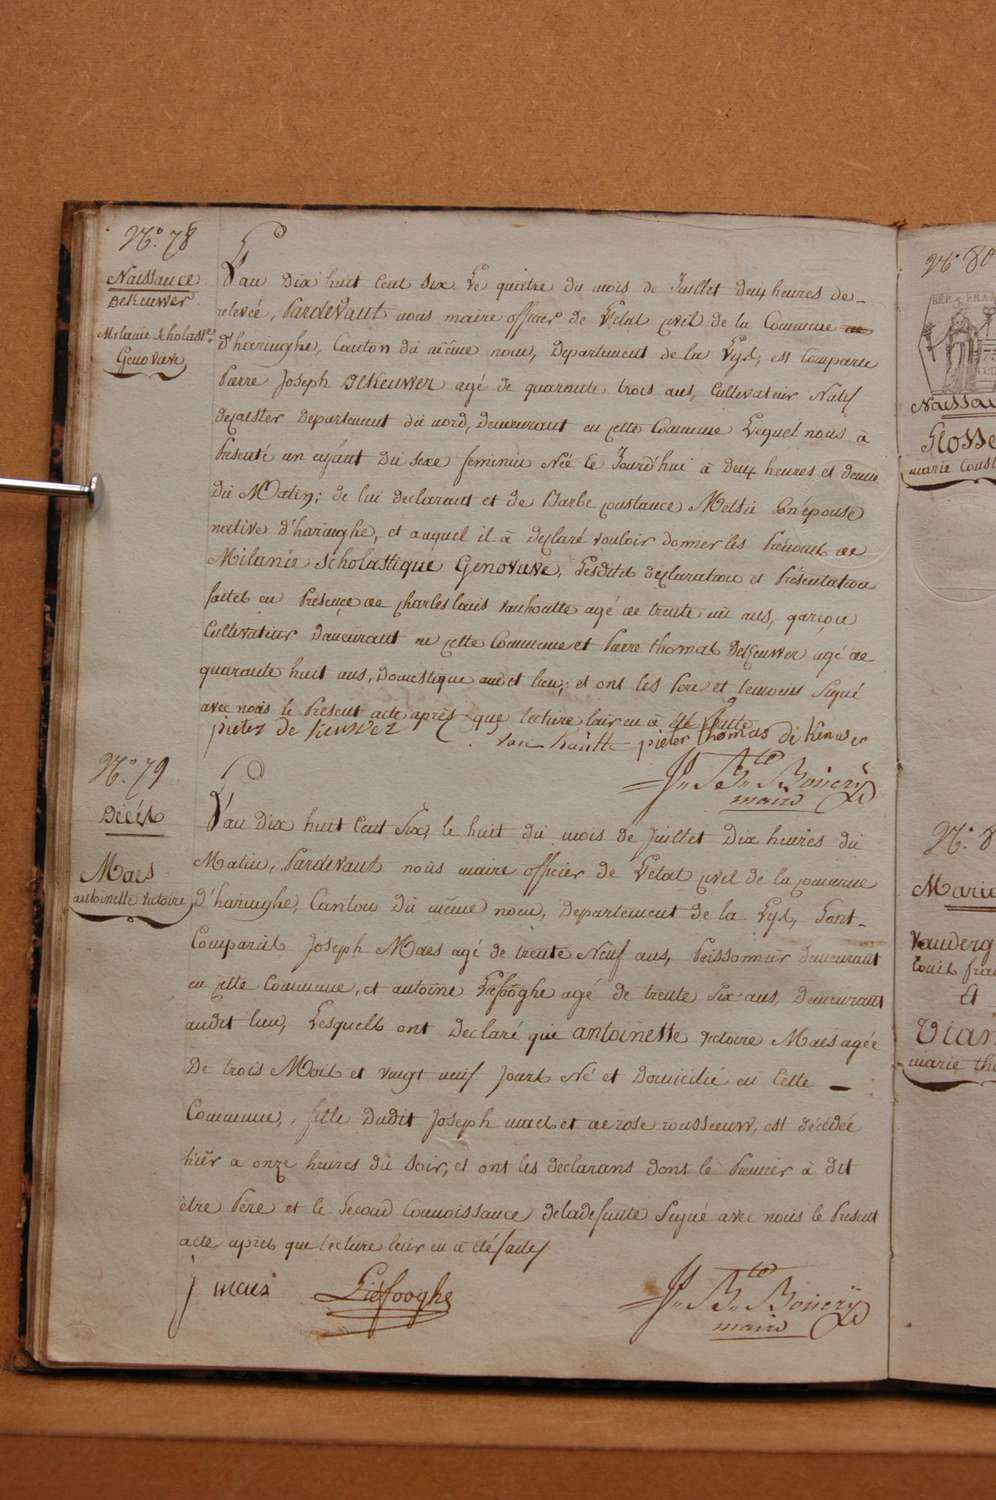 N.º 78
Naissance
DeKeuwer
Milanie Scholastiqe
Genoveve
L'an Dix huit Cent Six Le quatre du mois de Juillet deux heures de-
relevée, Pardevant nous maire officier de l'Etat civil de la Commune
d'haringhe, Canton du même nom, Departement de la Lys, est Comparu
Pierre Joseph DeKeuwer agé de quarante trois ans, Cultivateur Natif
de Departement du nord, Demeurant en cette Commune Lequel nous à
Presenté un enfant du Sexe feminin Née le Jourd'hui à deux heures et demie
Du Matin; de lui declarant et de Barbe constance son épouse
native d'haringhe, et auquel il à declaré vouloir donner les Prénoms de
Milanie Scholastique Genoveve, Lesdites declaration et Présentation
faites en Présence de Charles louis vanhoutte agé de trente un ans, garçon
Cultivateur Demeurant en cette Commune et Pierre thomas DeKeuwer agé de
quarante huit ans, Domestique audit lieu; et ont les Pere et temoins Signé
avec nous le Present acte après que lecture leur en a été faite
pieter de keuwer van houtte pieter thomas de kenwer
J.n B.te Boucry
maire
N.º 79
Décès
Maes
antoinette victoire
L'an Dix huit Cent Six, le huit du mois de Juillet Dix heures du
Matin, Pardevant nous maire officier de l'etat civil de la commune
D'haringhe, Canton du même nom, Departement de la Lys, Sont-
Comparus Joseph Maes agé de trente Neuf ans, Poissonnier demeurant
en cette Commune, et antoine Liefooghe agé de trente Six ans, Demeurant
audit lieu, Lesquels ont Declaré que antoinette victoire Maes agée
De trois Mois et vingt neuf Jours Né et Domicilié en Cette -
Commune, fille Dudit Joseph maes et de rose rousseeuw, est décédée
hier a onze heures du Soir; et ont les declarans dont le Premier à dit
etre Pere et le Second Connoissance deladefunte Signé avec nous le Present
acte aprés que lecture leur en a été faite
j maes Liefooghe J.n B.te Boucry
maire
N.º 80
REP. FRA
Naissan
marie Const
N.º 8
Marie
Vanderg
louis fra
Et
Vian
marie the